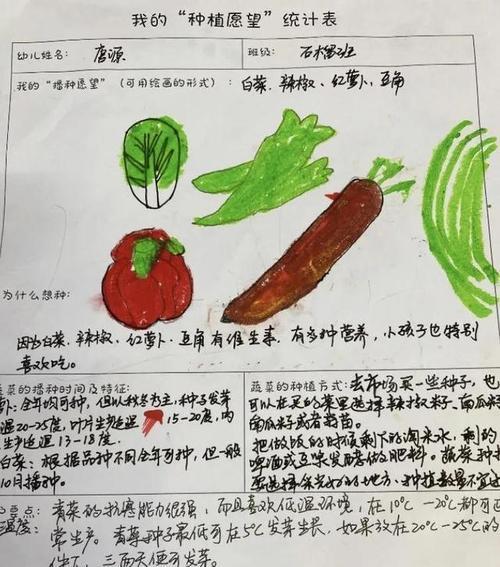 我的“种植愿望”统计表
幼儿姓名: 唐源 班级: 石榴班
我的“播种愿望”(可用绘画的形式): 白菜、辣椒、红萝卜、豆角
为什么想种:
因为白菜、辣椒、红萝卜、豆角有维生素,有多种营养,小孩子也特别
喜欢吃。
蔬菜的播种时间及特征:
卜:全年均可种,但以秋冬为主,种子发芽
温20-25度,叶片生长适温15-20度,肉
生长适温13-18度。
白菜:根据品种不同全年可种,但一般
10月播种。
蔬菜的种植方式: 去市场买一些种子,也
可以在足的菜里选择辣椒籽、南瓜籽
南瓜籽或者蒜苗
把做饭的时候剩下的淘米水,剩的
啤酒或豆浆发酵做肥料。蔬菜种
要选择采光好的地方,种植数量不宜
要点: 青菜的抗寒能力很强,而且喜欢低温环境,在10℃-20℃都可正
温度: 常生产。青菜种子最低可在5℃发芽生长,如果放在20℃-25℃的
件下,三两天便可发芽。